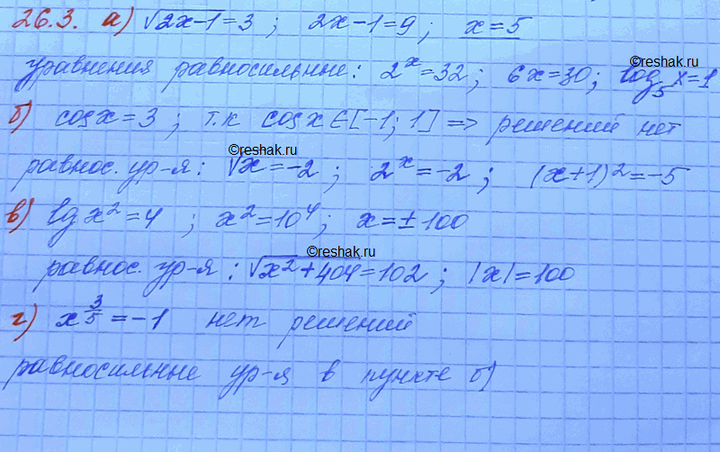 26.3. а) √2x-1=3 ; 2x-1=9 ; x=5
©reshak.ru
уравнения равносильные: 2^x=32; 6x=30; log_5 x=1
б) cosx=3 ; т.к cosx∈[-1;1] => решений нет
©reshak.ru
равнос. ур-я: √x=-2 ; 2^x=-2 ; (x+1)^2=-5
в) lgx^2=4 ; x^2=10^4; x=±100
©reshak.ru
равнос. ур-я : √x^2+404=102 ; |x|=100
г) x^(3/5)=-1 нет решений
равносильные ур-я в пункте б)